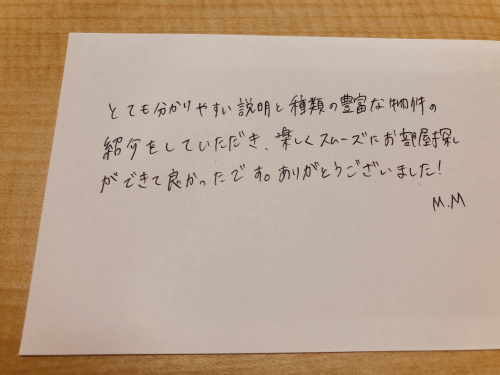 とても分かりやすい説明と種類の豊富な物件の
紹介をしていただき、楽しくスムーズにお部屋探し
ができて良かったです。ありがとうございました!
M.M